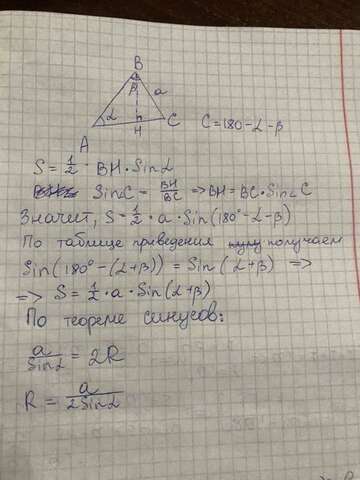 B
β
a
α
h
A
H
C
C = 180 - α - β
S = 1/2 · BH · Sinα
Sin∠C = BH/BC => BH = BC · Sin∠C
Значит, S = 1/2 · a · Sin(180° - α - β)
По таблице приведения получаем
Sin(180° - (α + β)) = Sin(α + β) =>
=> S = 1/2 · a · Sin(α + β)
По теореме синусов:
a/Sinα = 2R
R = a/2Sinα